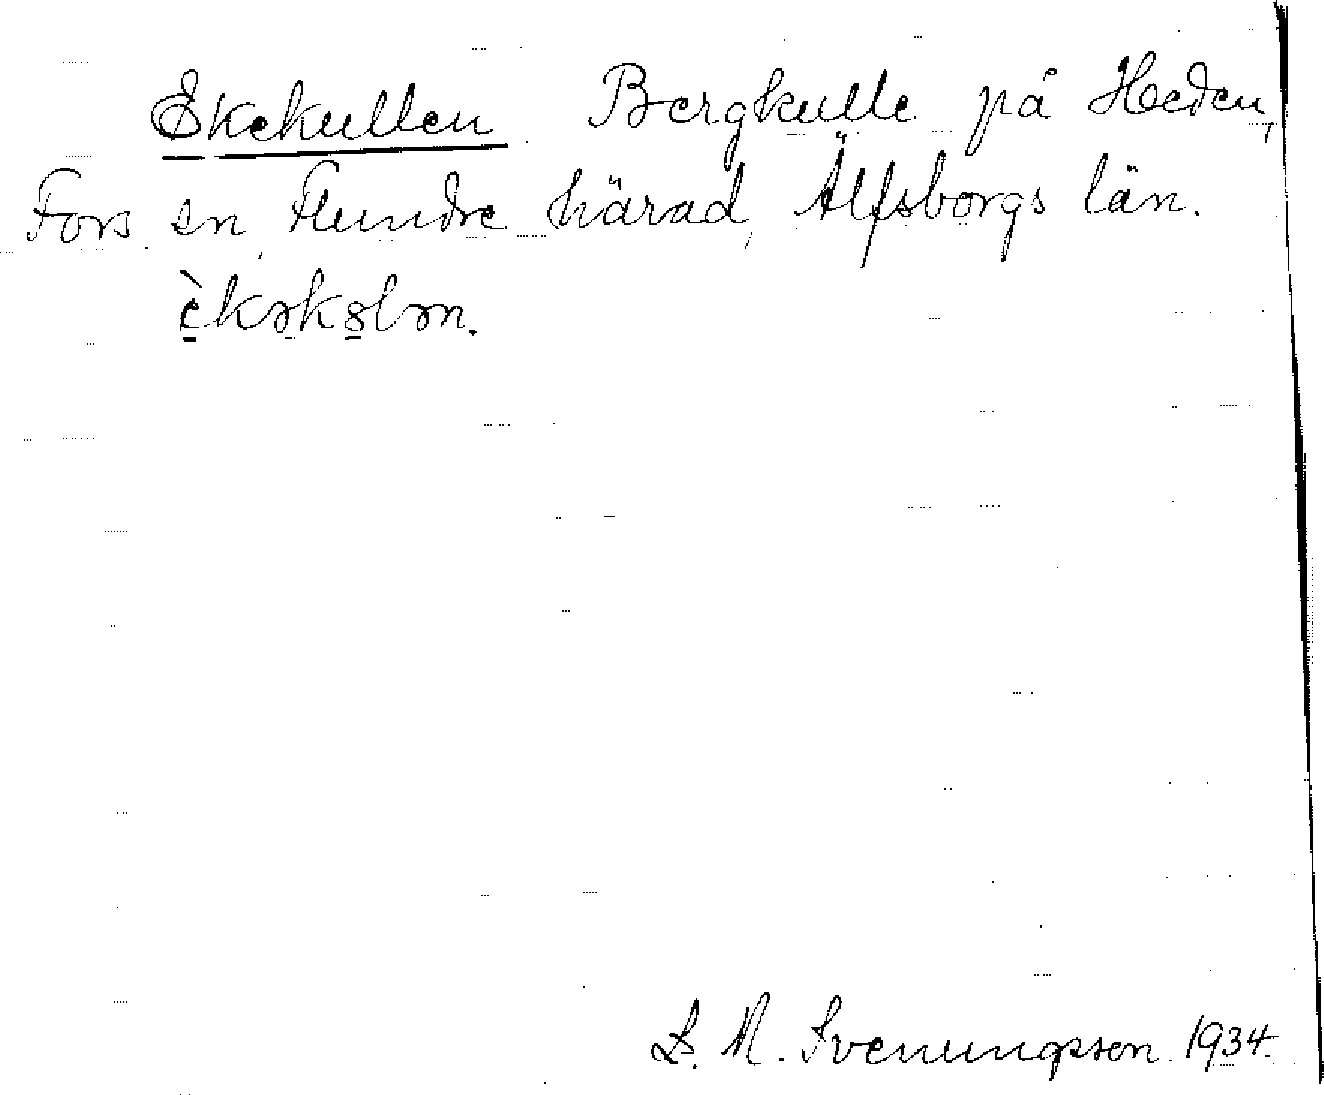 Ekekullen. Bergkulle på Heden,
Fors sn, Flundre härad, Älfsborgs län.
èkəkȣlən.
S. M. Svenungsson 1934.